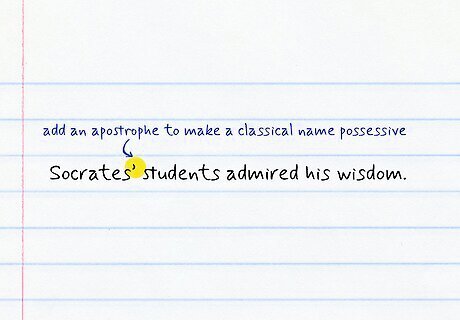 add an apostrophe to make a classical name possessive
Socrates’ students admired his wisdom.